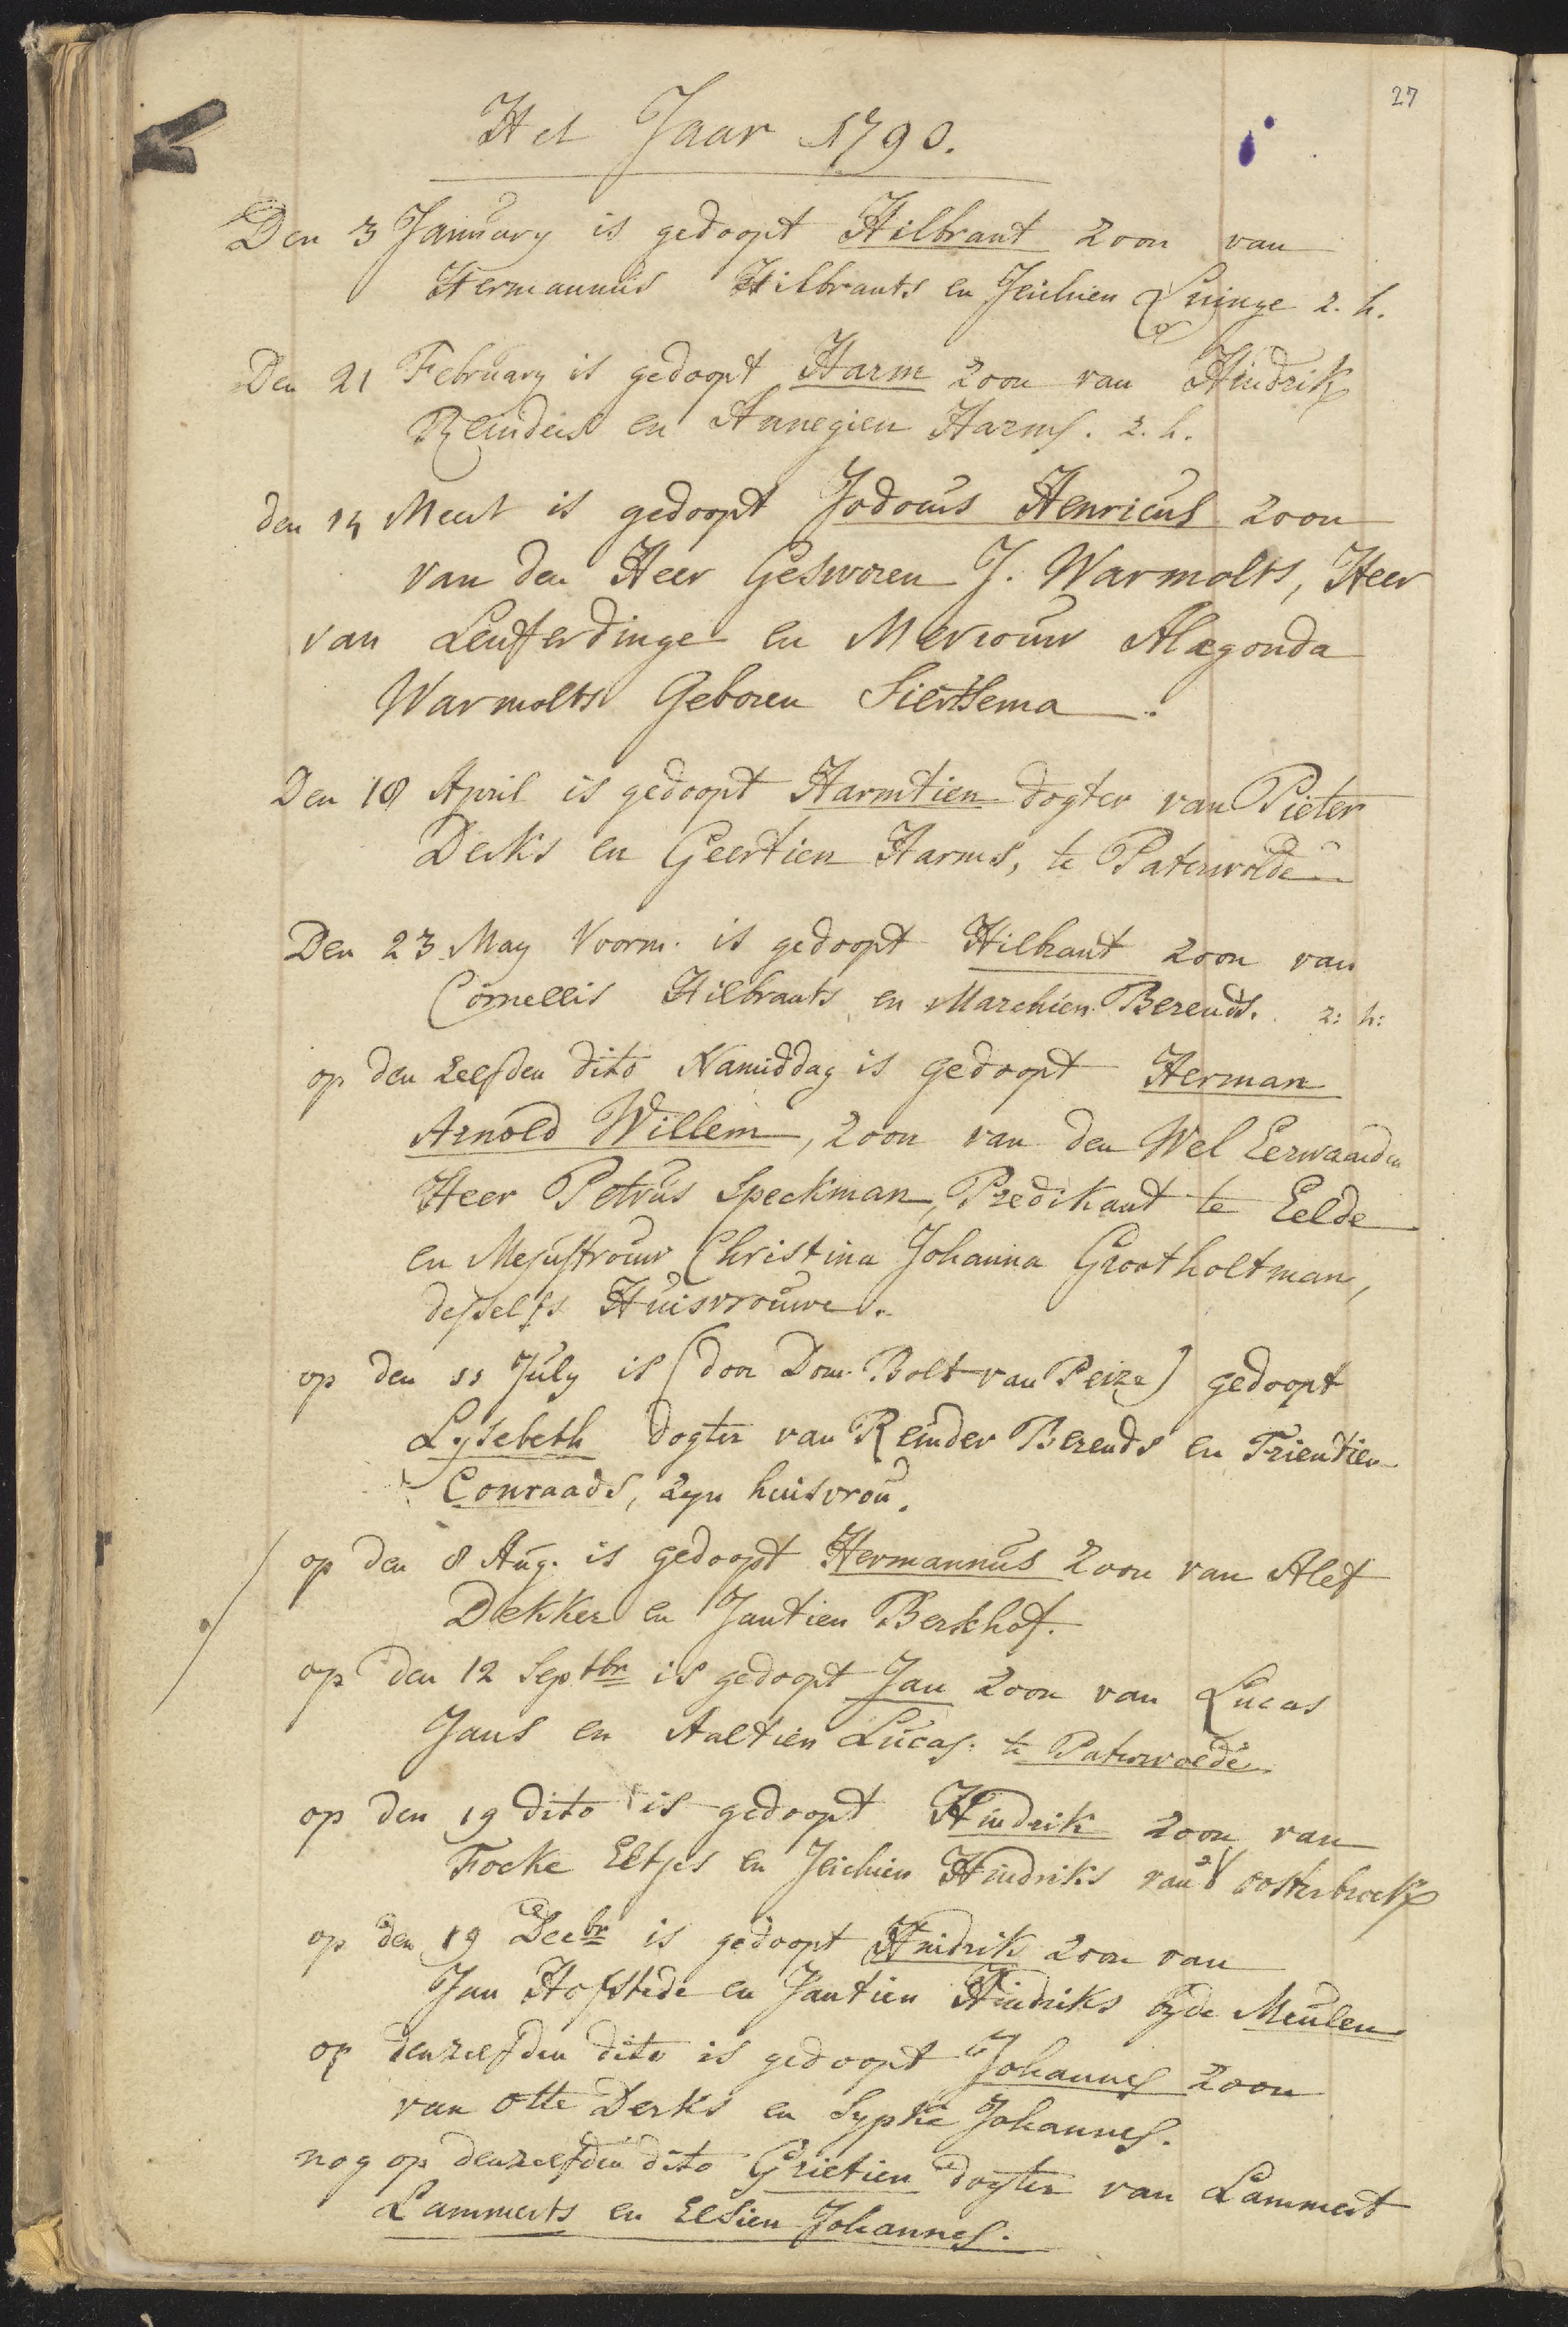 27
Het Jaar 1790.
Den 3 January is gedoopt Hilbrant zoon van
Hermannus Hilbrants en Jeichien Luinge z. h.
Den 21 February is gedoopt Harm zoon van Hindrik
Reinders en Annegien Harms. z. h.
den 14 Meert is gedoopt Jodocus Henricus zoon
van den Heer Gesworen J. Warmolts, Heer
van Lemferdinge en Mevrouw Alegonda
Warmolts Geboren Siertsema.
Den 18 April is gedoopt Harmtien dogter van Pieter
Derks en Geertien Harms, te Paterwolde
Den 23 May Voorm. is gedoopt Hilbrant zoon van
Cornellis Hilbrants en Marchien Berends. z: h:
op den zelfden dito Namiddag is gedoopt Herman
Arnold Willem, zoon van den Wel Eerwaarden
Heer Petrus Speckman, Predikant te Eelde
en Mejuffrouw Christina Johanna Grootholtman,
desselfs Huisvrouwe.
op den 11 July is (door Dom. Bolt van Peize) gedoopt
Lysebeth dogter van Reinder Berends en Trientien
Conraads, zyn huisvrou.
op den 8 Aug. is gedoopt Hermannus zoon van Alef
Dekker en Jantien Berkhof.
op den 12 Septbr is gedoopt Jan zoon van Lucas
Jans en Aaltien Lucas. te Paterwolde
op den 19 dito is gedoopt Hindrik zoon van
Focke Eltjes en Jeichien Hindriks van d oosterbroek
op den 19 Decbr is gedoopt Hindrik zoon van
Jan Hofstede en Jantien Hindriks by de Meulen
op denzelfden dito is gedoopt Johannes zoon
van Otte Derks en Sypke Johannes.
nog op denzelfden dito Grietien dogter van Lammert
Lammerts en Elsien Johannes.